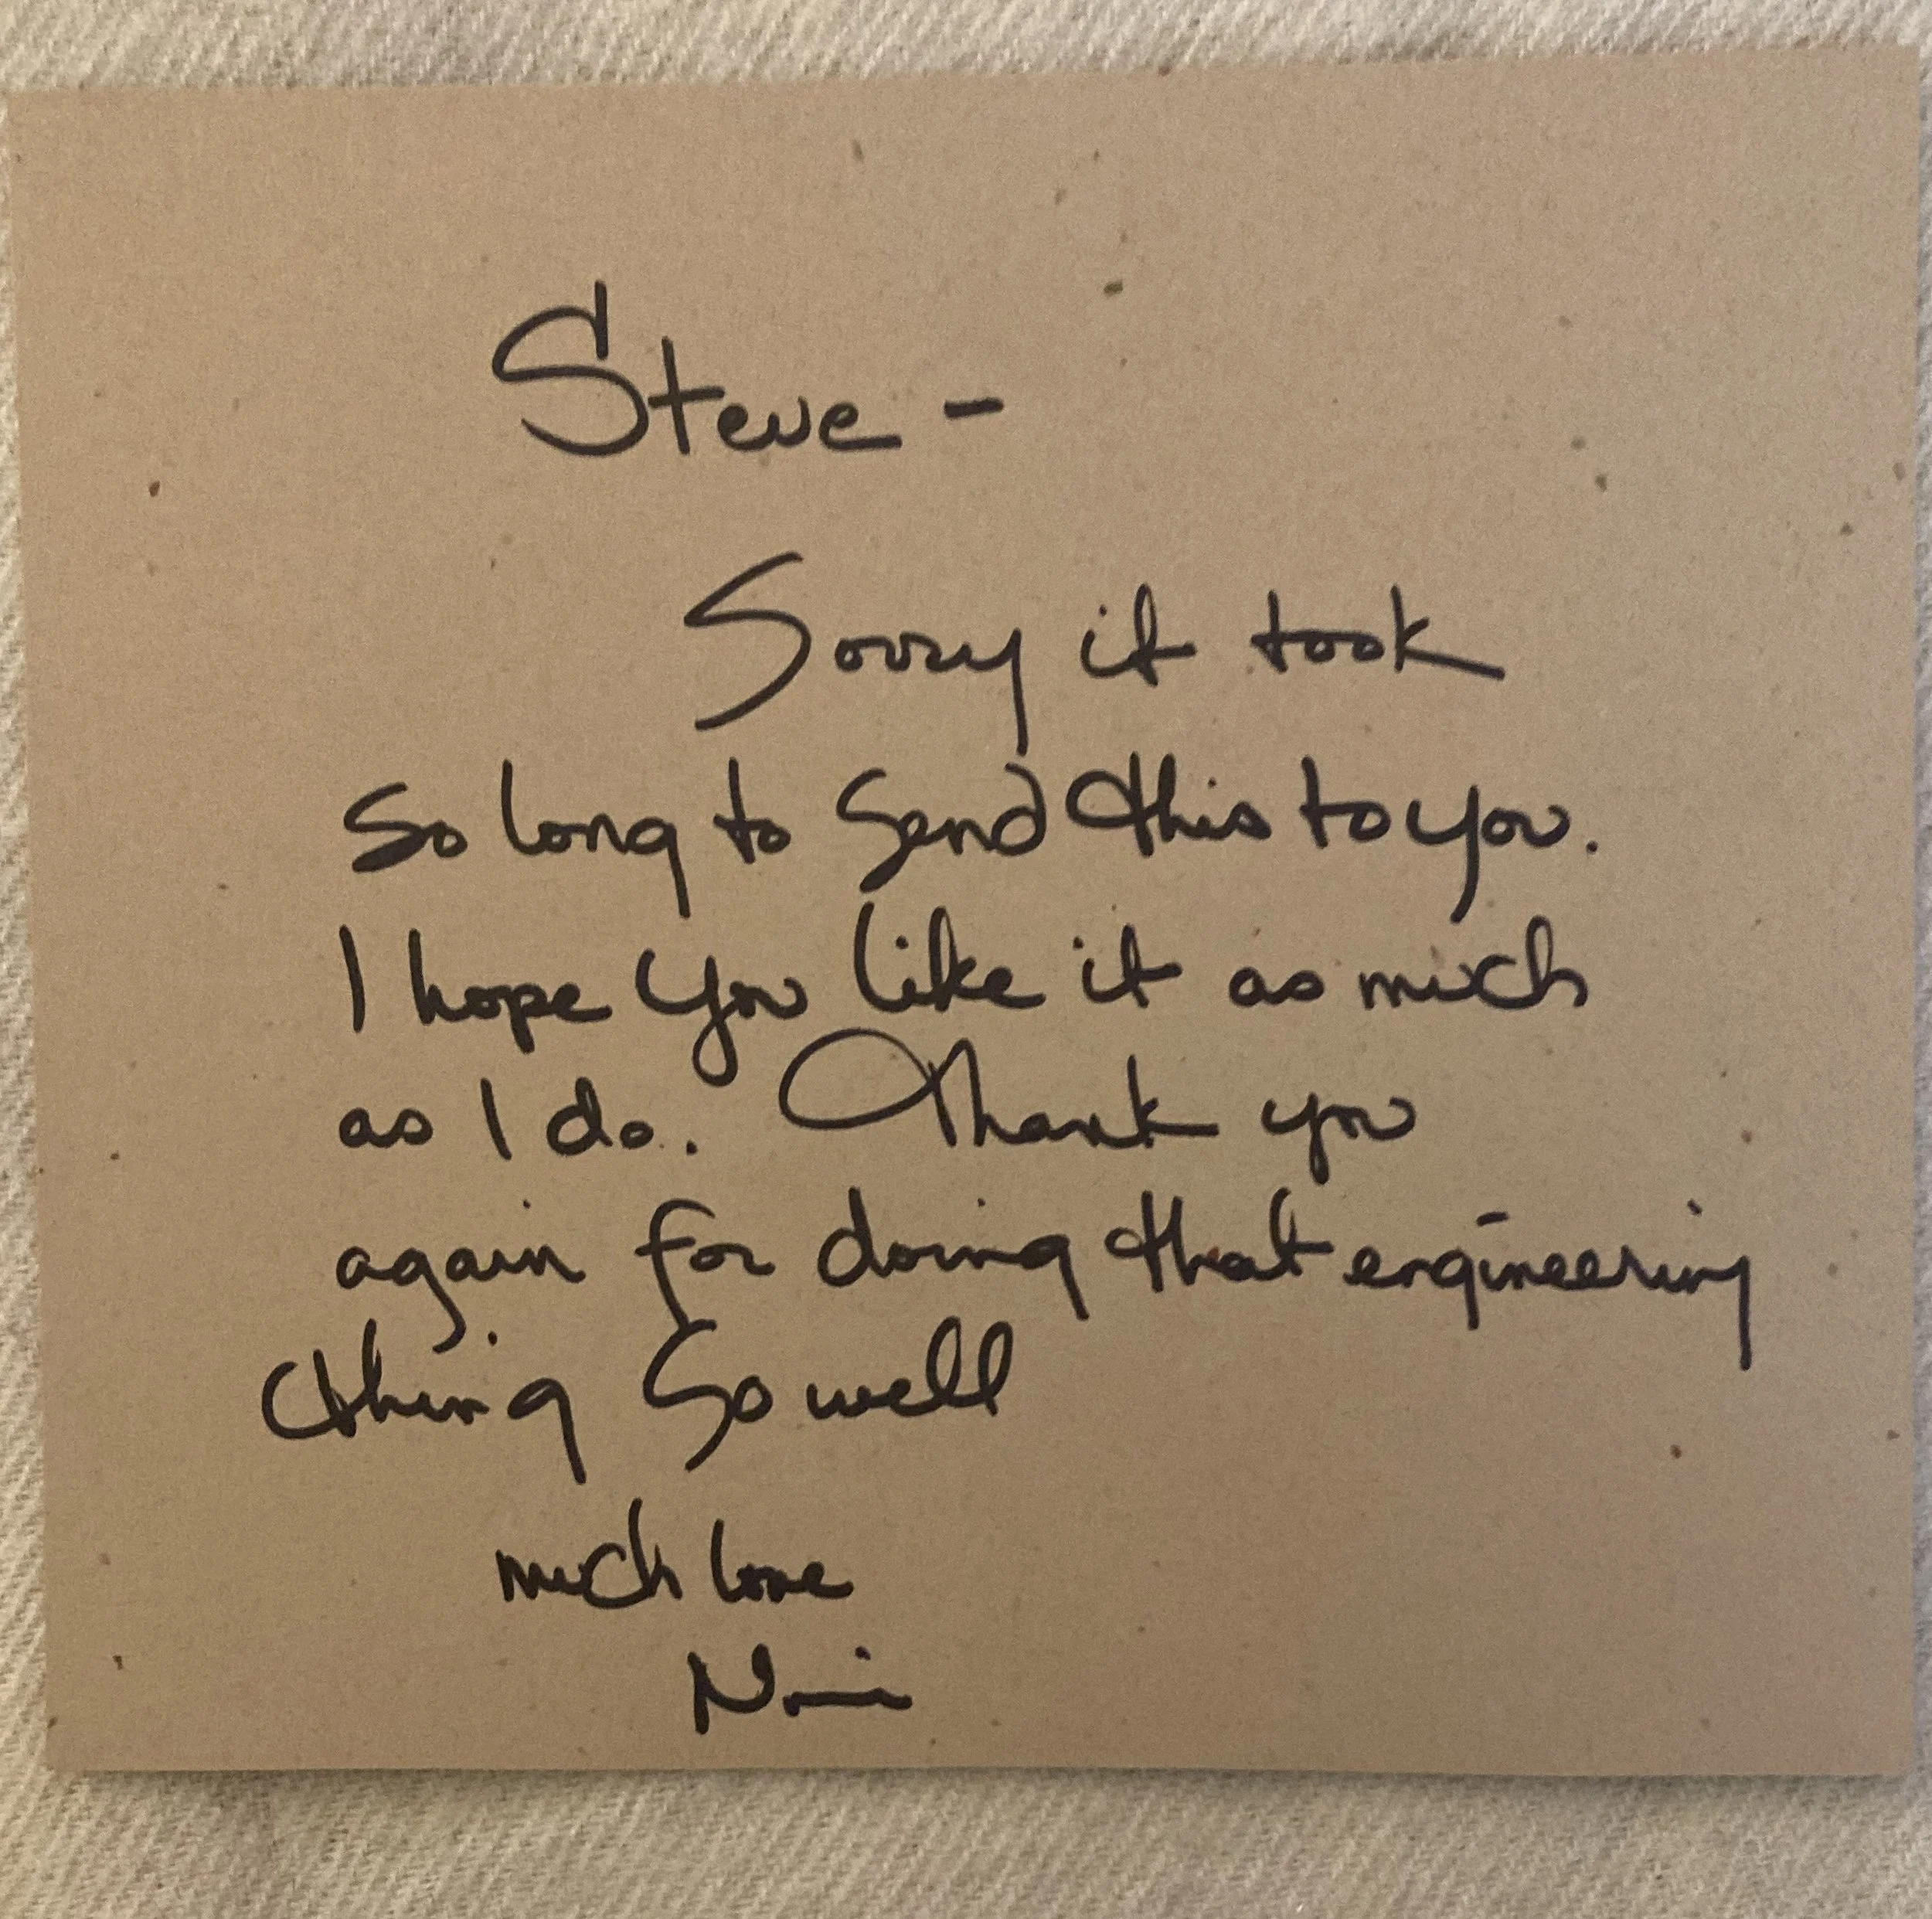 Steve -
Sorry it took
so long to send this to you.
I hope you like it as much
as I do. Thank you
again for doing that engineering
thing so well
much love